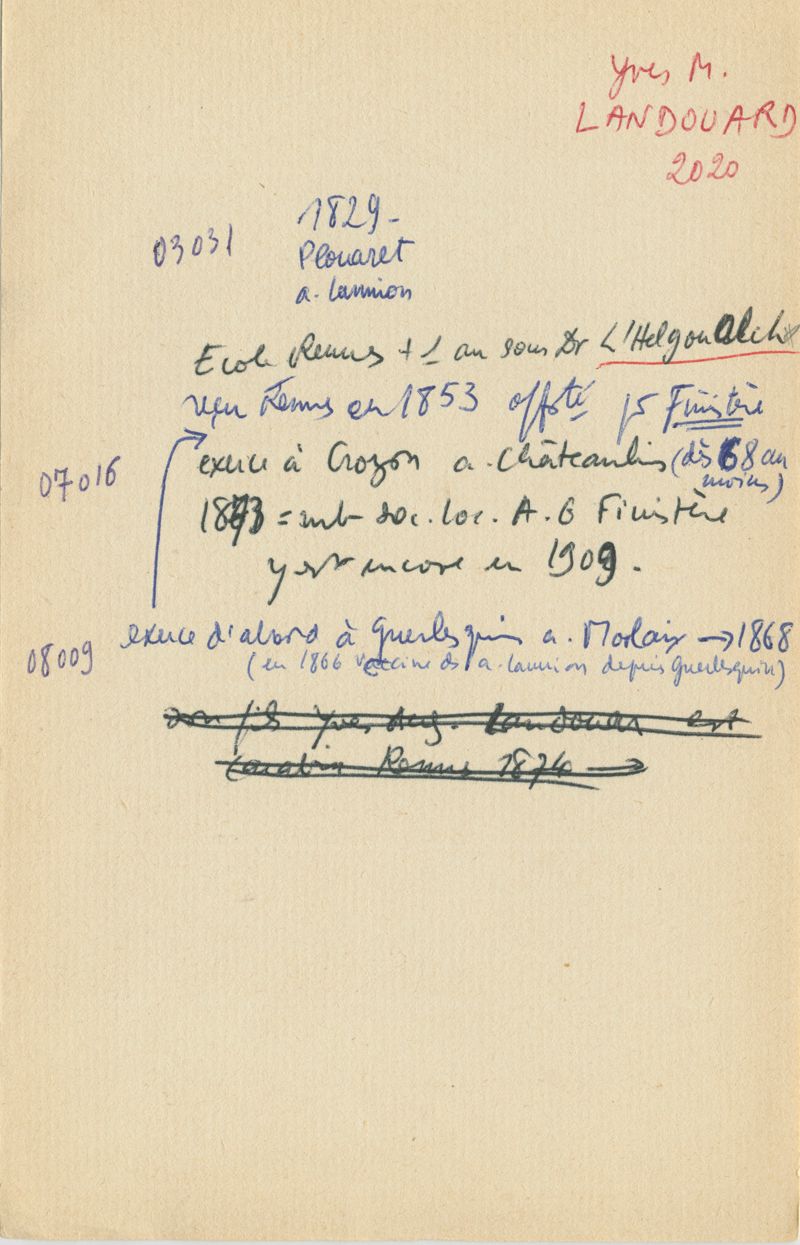 Yves M.
LANDOUARD
2020
1829-
03031
Plouaret
a. Lannion
Ecole Rennes + 1 an sous Dr L'Helgoualch
reçu Rennes en 1853 offté pr Finistère
07016
exerce à Crozon a. Châteaulin (dès 68 au
moins)
1873 = mb soc. loc. A.G Finistère
y est encore en 1909.
08009
exerce d'abord à Guerlesquin a. Morlaix → 1868
(en 1866 vaccine ds a. Lannion depuis Guerlesquin)
son fils Yves Aug. Landouar est
Rennes 1874 →